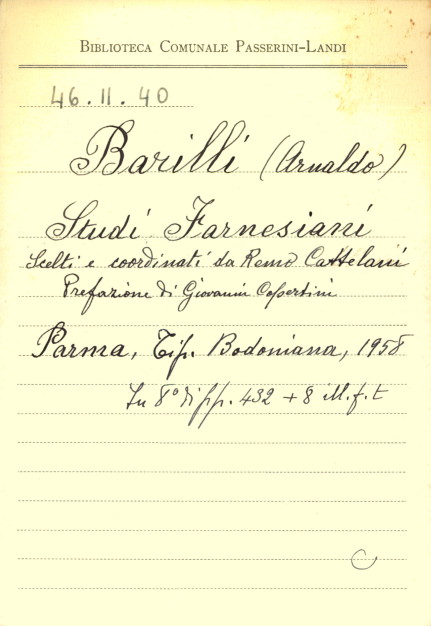 BIBLIOTECA COMUNALE PASSERINI-LANDI
46.II.40
Barilli (Arnaldo)
Studi Farnesiani
Scelti e coordinati da Remo Cattelani
Prefazione di Giovanni Copertini
Parma, Tip. Bodoniana, 1958
In 8° di pp. 432 + 8 ill. f. t
C